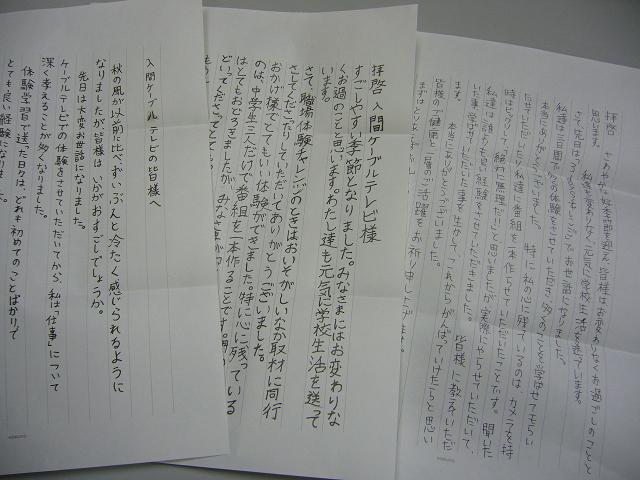 拝啓
さわやかな好季節を迎え、皆様はお変わりなくお過ごしのことと
思います。
私達も変わりなく、元気に学校生活を送っています。
さて先日は、お世話になりました。
私達は三日間
本当にありがとうございました。特に私の心に残っているのは、カメラを持
たせていただいたり、私達に番組を一本作らせていただいたことです。聞いた
時はびっくりして「絶対に無理だ!!」と思いましたが実際にやらせていただいて、
私達は「誰よりも良い経験」をさせていただきました。皆様に教えていただ
いた事、学ばせていただいた事を生かして、これからがんばっていけたらと思い
ます。本当にありがとうございました。
皆様のご健康と一層のご活躍をお祈り申し上げます。
拝啓 入間ケーブルテレビ様
すごしやすい季節となりました。みなさまにはお変わりな
くお過ごしのことと思います。わたし達も元気に学校生活を送って
います。
さて、職場体験チャレンジのときはおいそがしいなか取材に同行
させてくださったりしていただいてありがとうございました。
おかげ様でとてもいい体験ができました。特に心に残っている
のは、中学生三人だけで番組を一本作ることです。
はとてもおどろきましたが、みなさまが
入間ケーブルテレビの皆様へ
秋の風が以前に比べずいぶんと冷たく感じられるように
なりましたが皆様はいかがおすごしでしょうか。
先日は大変お世話になりました。
ケーブルテレビでの体験をさせていただいてから、私は「仕事」について
深く考えることが多くなりました。
体験学習で送った日々は、どれも初めてのことばかりで
とても良い経験になりました